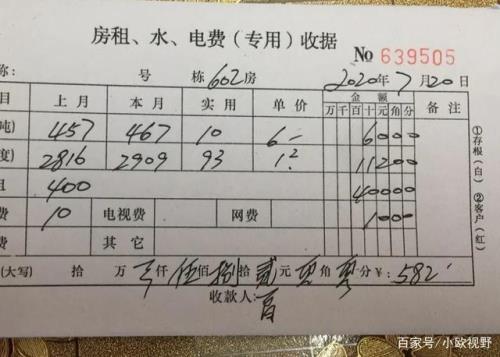 房租、水、电费(专用)收据
№ 639505
称: 号 栋602房 2020年7月20日
目 上月 本月 实用 单价 金额 备注
万千百十元角分
吨) 457 467 10 6- 6000
度) 2816 2909 93 1.2 11200
租 400 40000
费 10 电视费 网费 1000
费 其它
(大写) 拾 万 仟 伍佰 捌拾 贰元 零角 零分 ¥: 582
收款人:
①存根(白) ②客户(红)
百家号/小欧视野